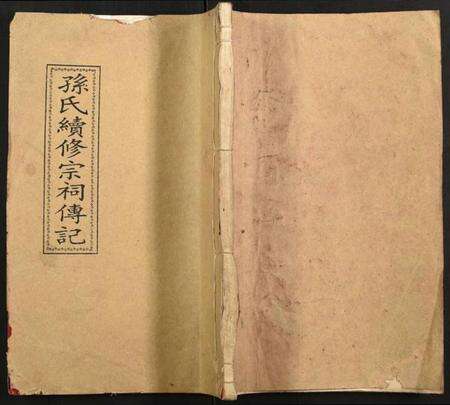 孫氏續修宗祠傳記